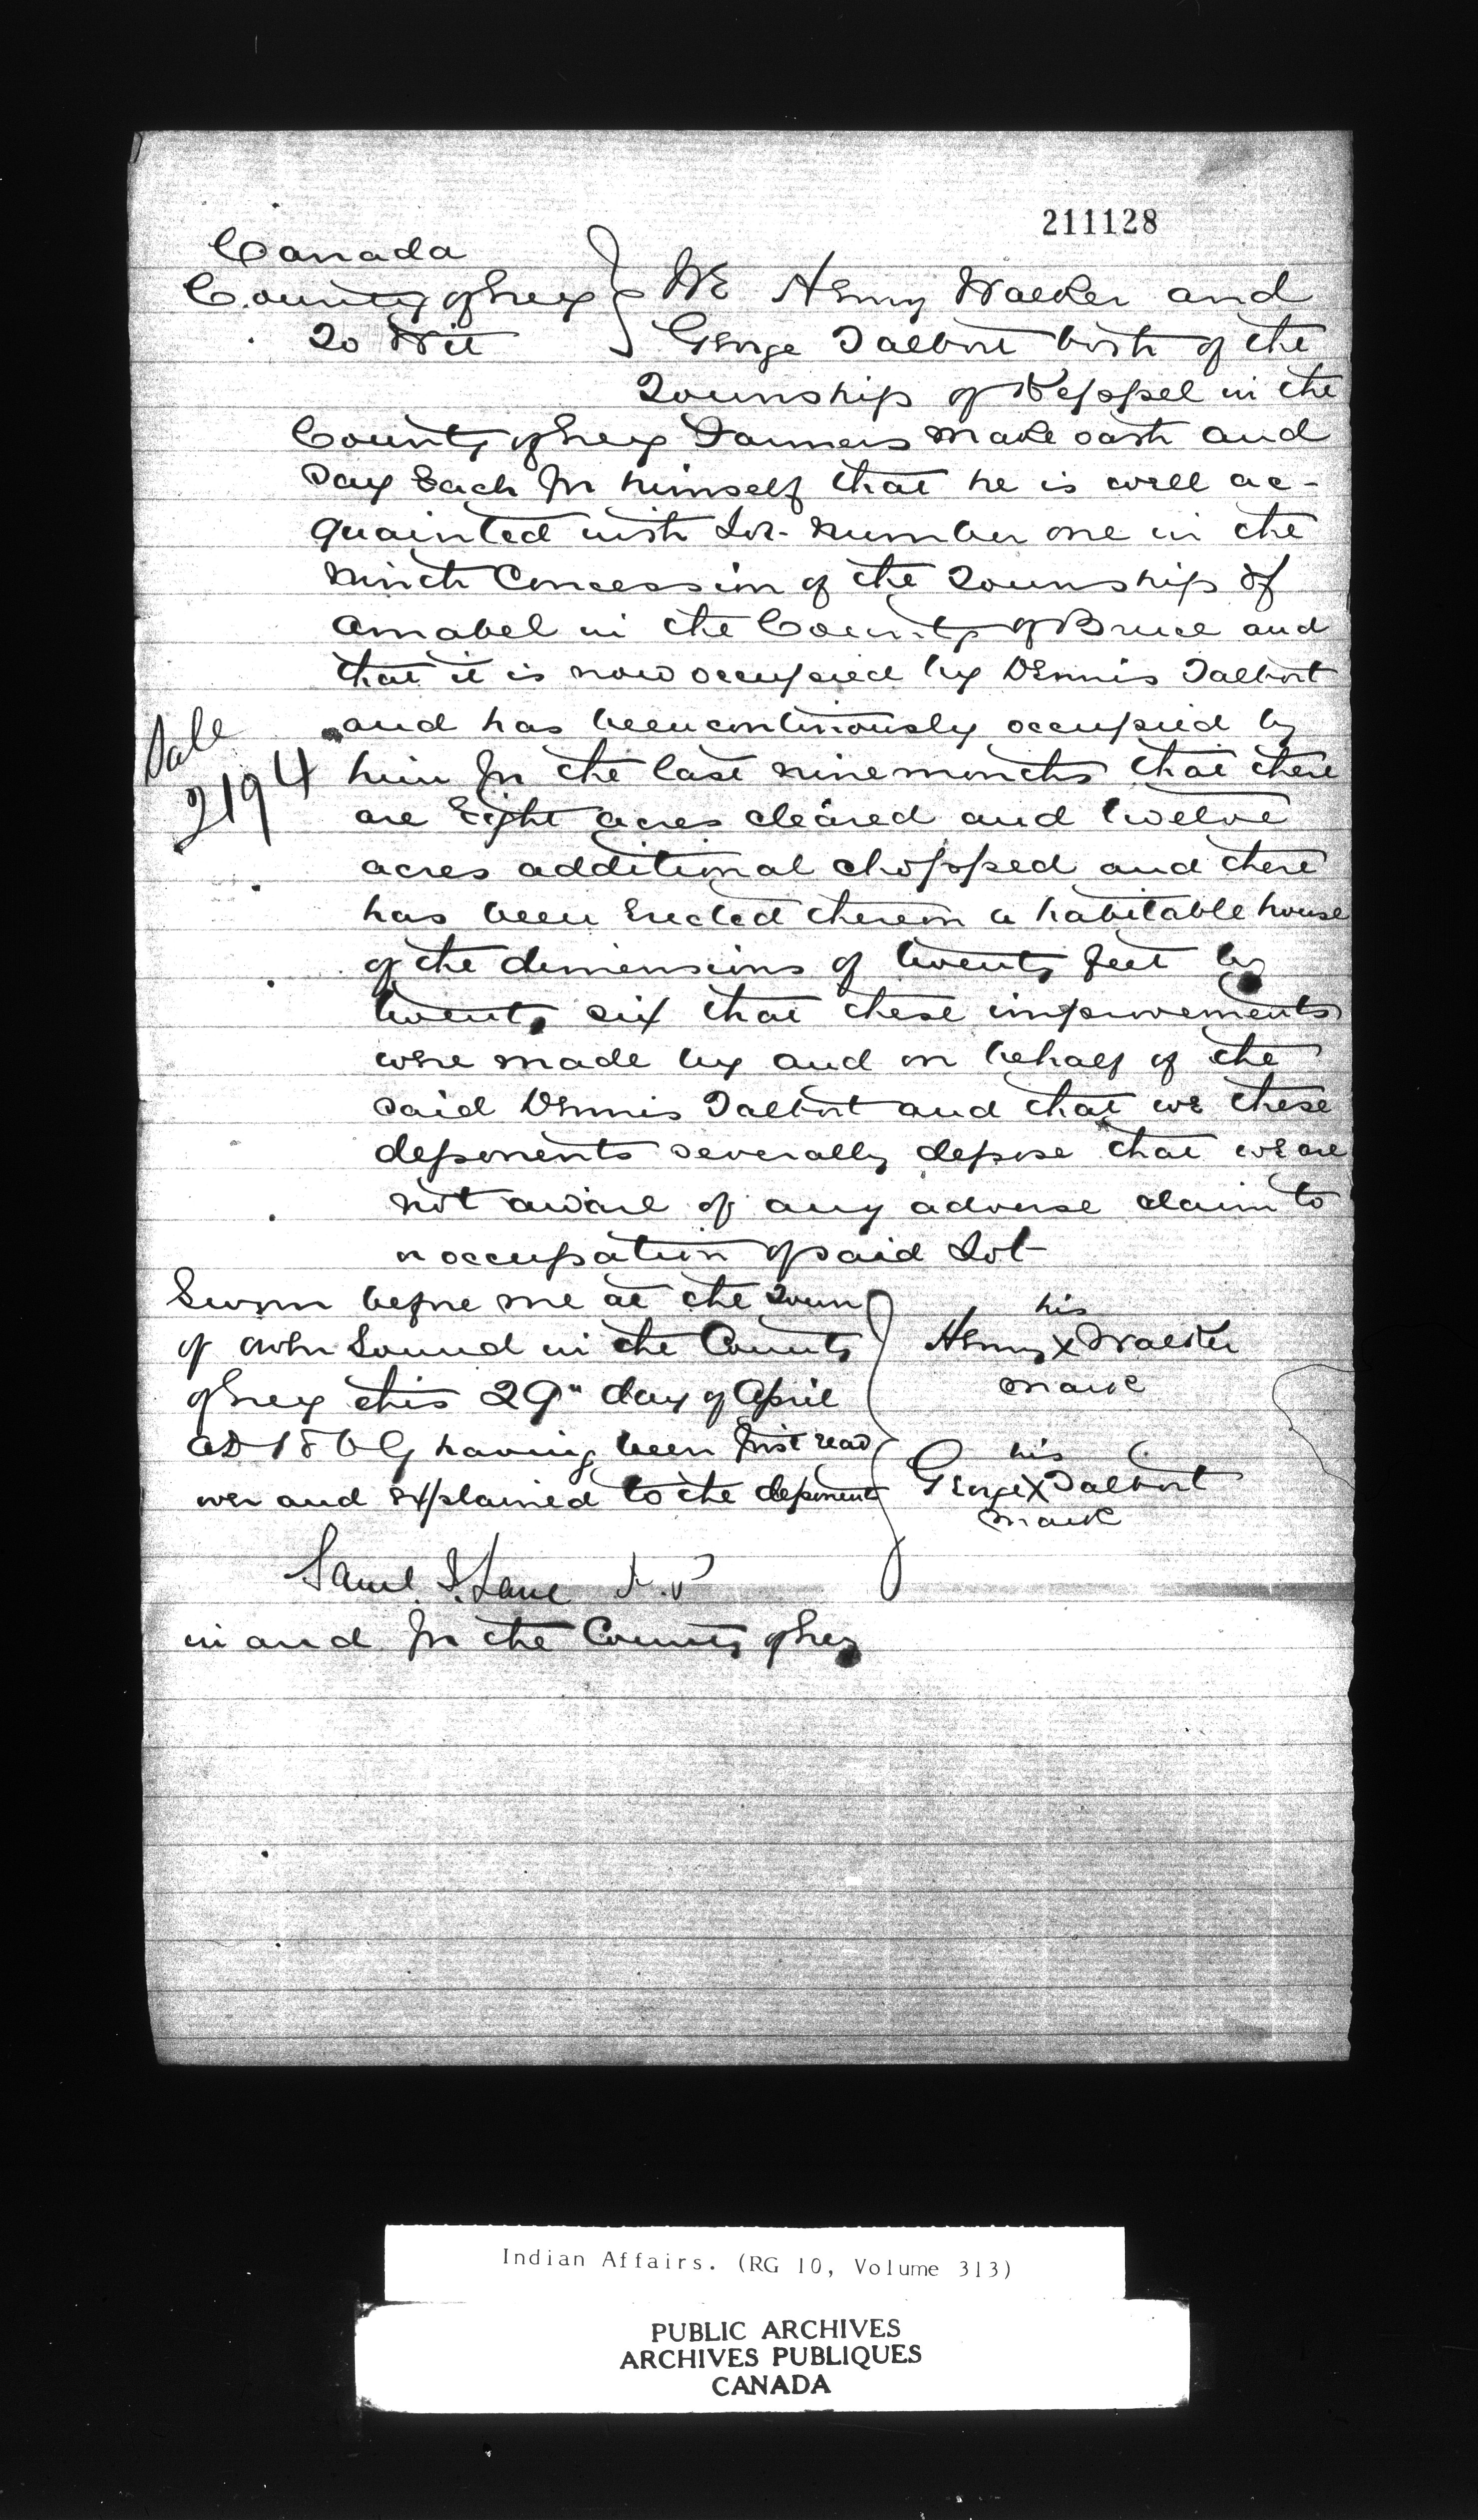 211128
Canada
County of Grey } We Henry Walker and
To Wit } George Talbort both of the
Township of Keppel in the
County of Grey Farmers make oath and
Say Each for himself that he is well ac-
quainted with Lot Number one in the
Ninth Concession of the Township of
Amabel in the County of Bruce and
that it is now occupied by Dennis Talbort
and has been continously occupied by
Sale
2194
him for the last nine months that there
are Eight acres cleared and twelve
acres additional chopped and there
has been Erected thereon a habitable house
of the dimensions of twenty feet by
twenty six that these improvements
were made by and on behalf of the
said Dennis Talbort and that we these
deponents severally depose that we are
not aware of any adverse claim to
or occupation of said Lot
Sworn before me at the Town
of Owen Sound in the County
of Grey this 29" day of April
AD 1869 having been first read
over and explained to the deponents
his
Henry X Walker
mark
his
George X Talbort
mark
Saml. J. Lane J.P
in and for the County of Grey
Indian Affairs. (RG 10, Volume 313)
PUBLIC ARCHIVES
ARCHIVES PUBLIQUES
CANADA